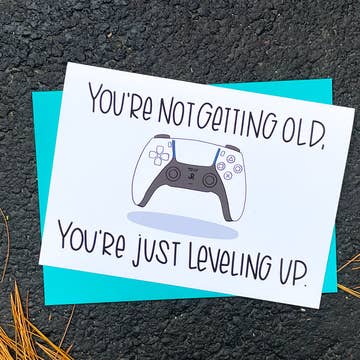 YOU'RE NOT GETTING OLD,
YOU'RE JUST LEVELING UP.